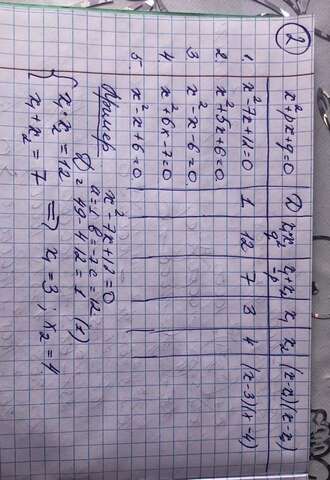 2
x²+px+q=0 D x₁·x₂ x₁+x₂ x₁ x₂ (x-x₁)(x-x₂)
q -p
1. x²-7x+12=0 1 12 7 3 4 (x-3)(x-4)
2. x²+5x+6=0
3. x²-x-6=0
4. x²+6x-7=0
5. x²-x+6=0
Пример x²-7x+12=0
a=1 b=-7 c=12
D = 49-4·12=1 (2)
{ x₁·x₂=12
x₁+x₂=7 ⇒ x₁=3; x₂=4